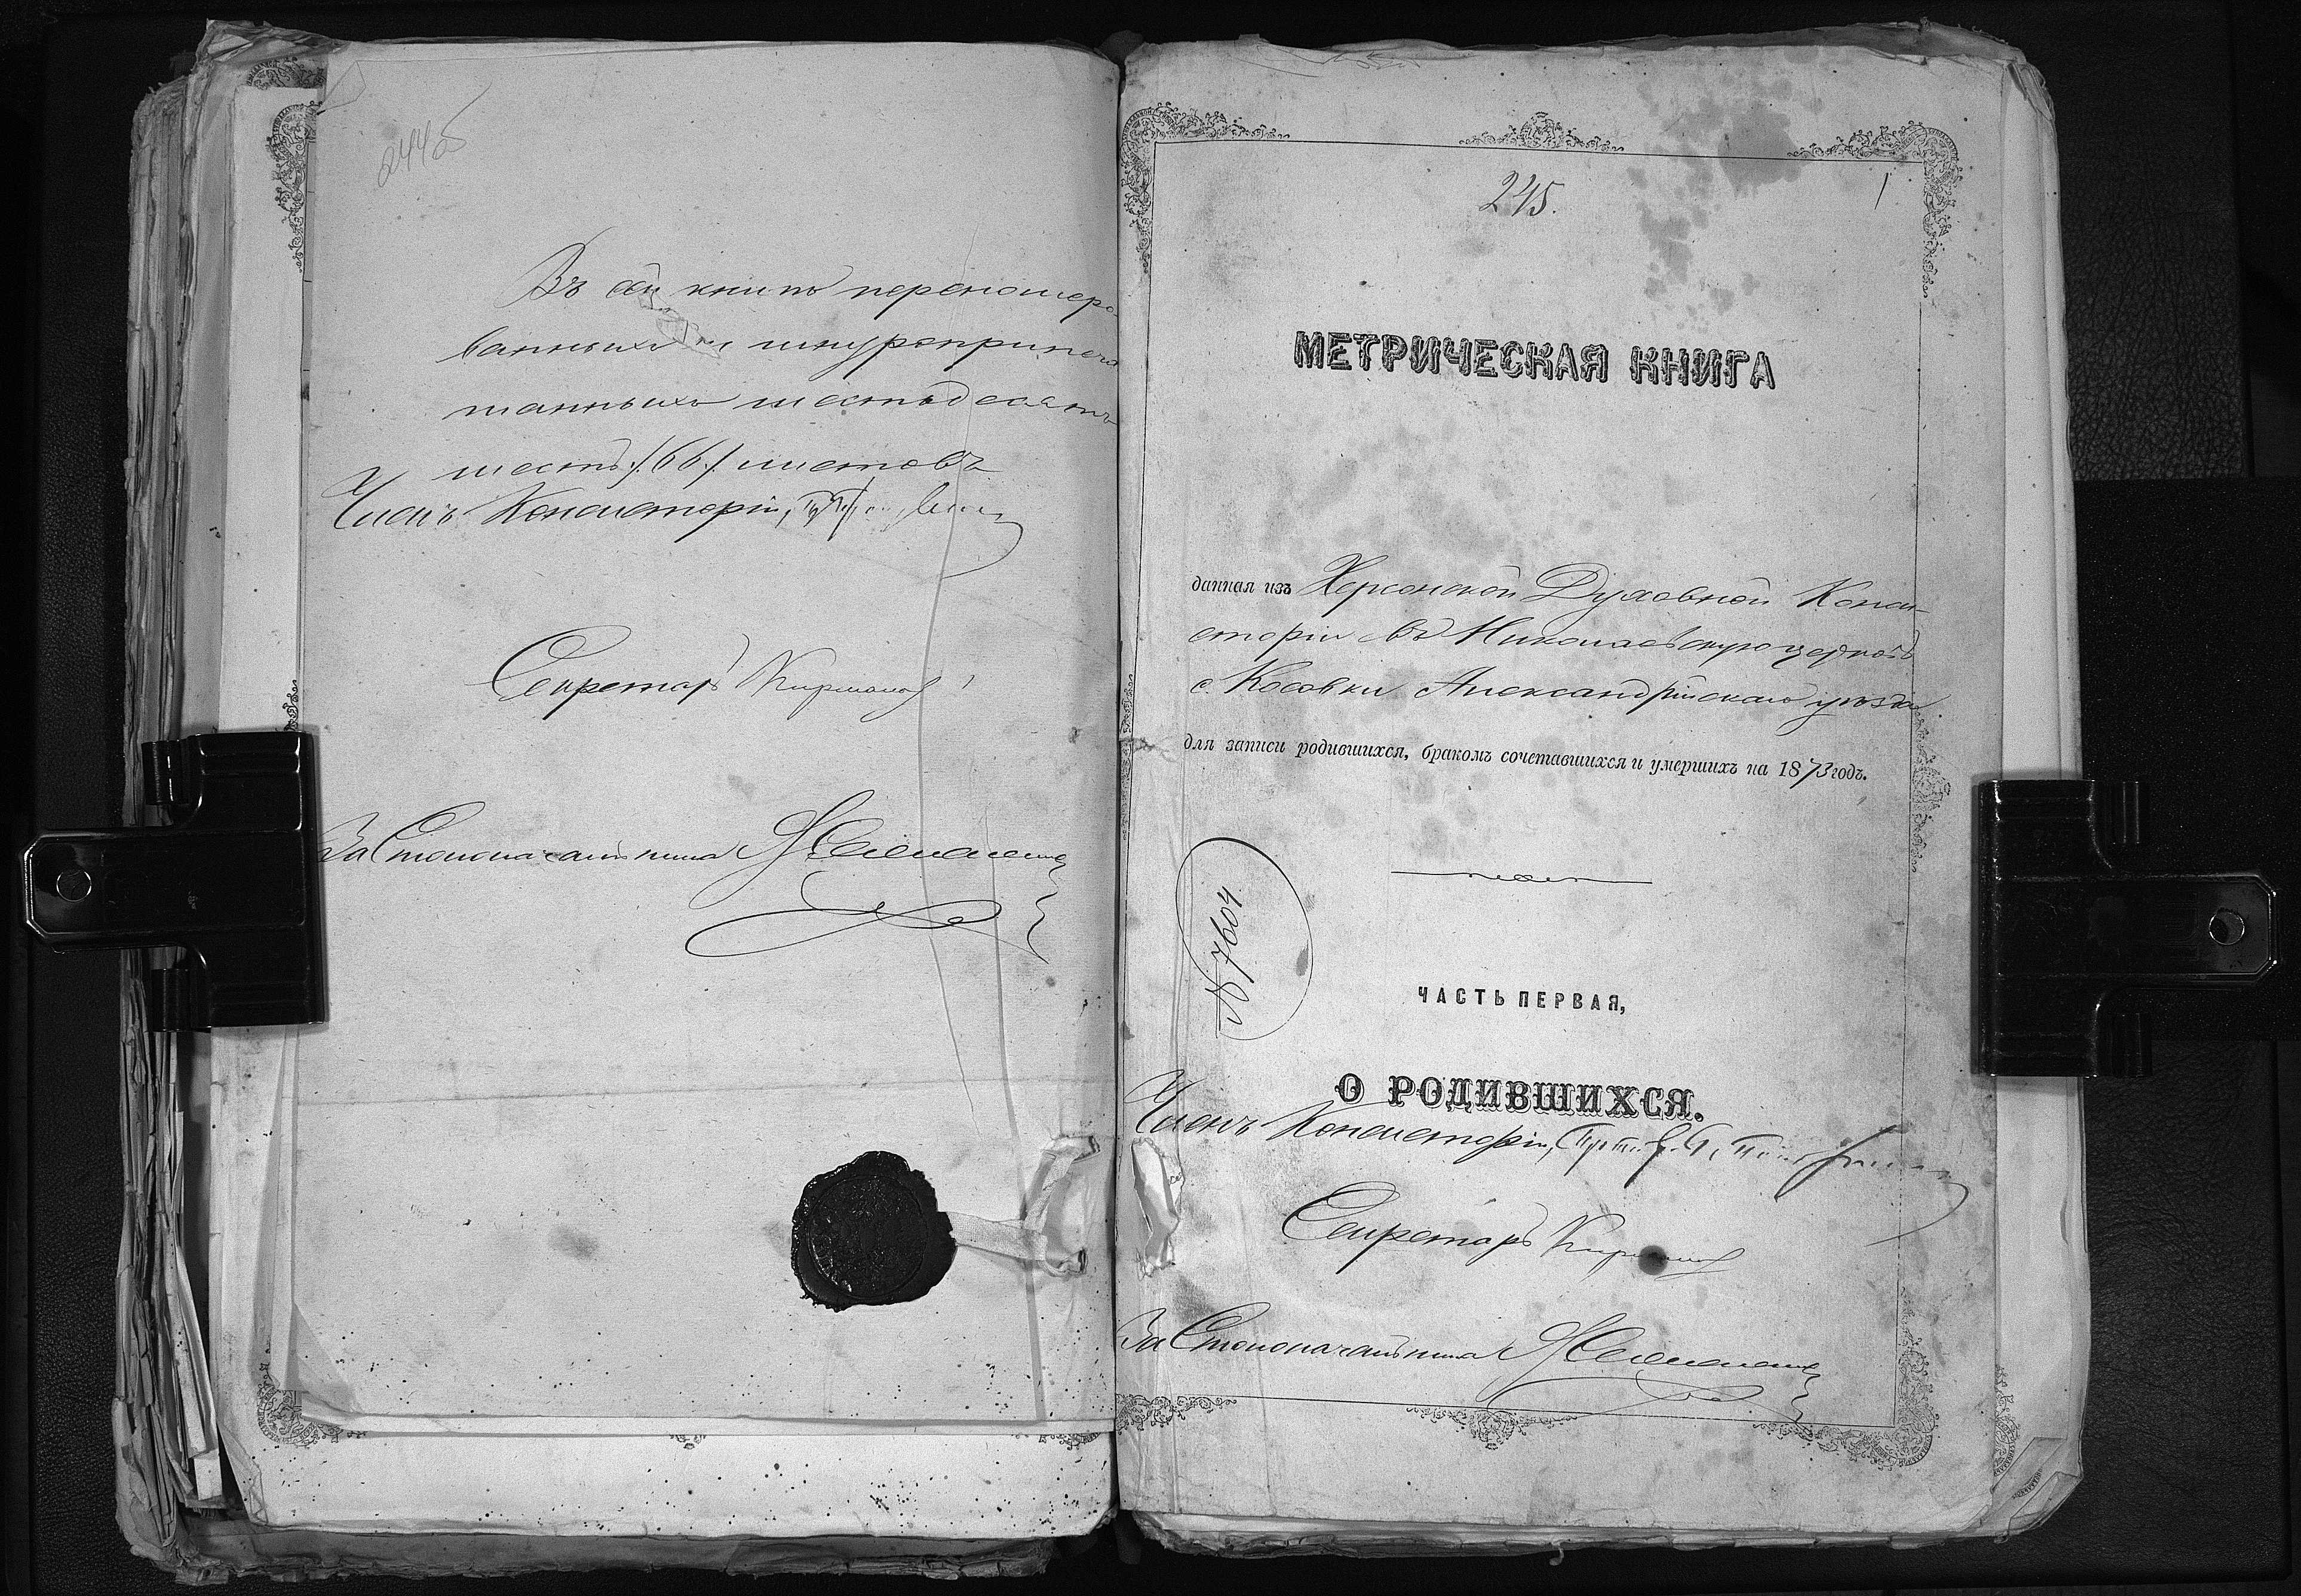 244об
Въ сей книгѣ перенумеро-
ванныхъ и шнуроприпеча
танныхъ шестьдесятъ
шесть /66/ листовъ
Членъ Консисторіи,
Секретарь
За Столоначальника
245.
1
МЕТРИЧЕСКАЯ КНИГА
данная изъ Херсонской Духовной Конси-
сторіи въ Николаевскую церковь
с. Косовки Александрійскаго уѣзда
для записи родившихся, бракомъ сочетавшихся и умершихъ на 1873 годъ.
№ 7604
ЧАСТЬ ПЕРВАЯ,
О РОДИВШИХСЯ.
Членъ Консисторіи,
Секретарь
За Столоначальника